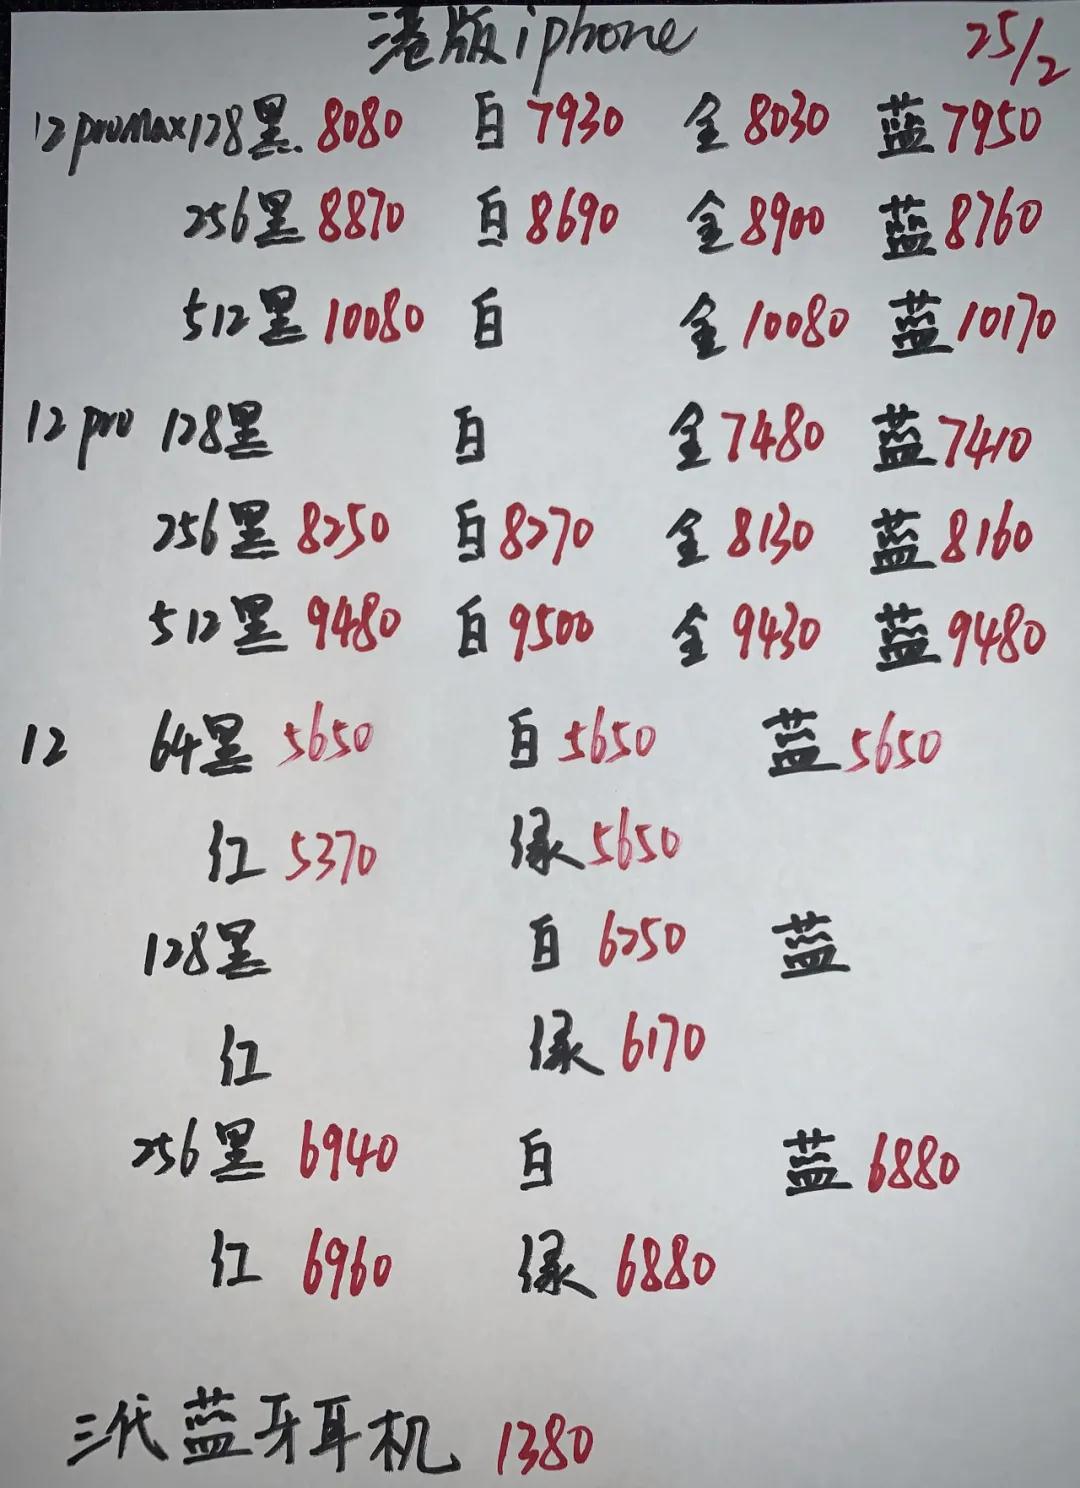 港版iphone 25/2
12promax128黑 8080 白 7930 金 8030 蓝 7950
256黑 8870 白 8690 金 8900 蓝 8760
512黑 10080 白 金 10080 蓝 10170
12 pro 128黑 白 金 7480 蓝 7410
256黑 8250 白 8270 金 8130 蓝 8160
512黑 9480 白 9500 金 9430 蓝 9480
12 64黑 5650 白 5650 蓝 5650
红 5370 绿 5650
128黑 白 6250 蓝
红 绿 6170
256黑 6940 白 蓝 6880
红 6960 绿 6880
三代蓝牙耳机 1380